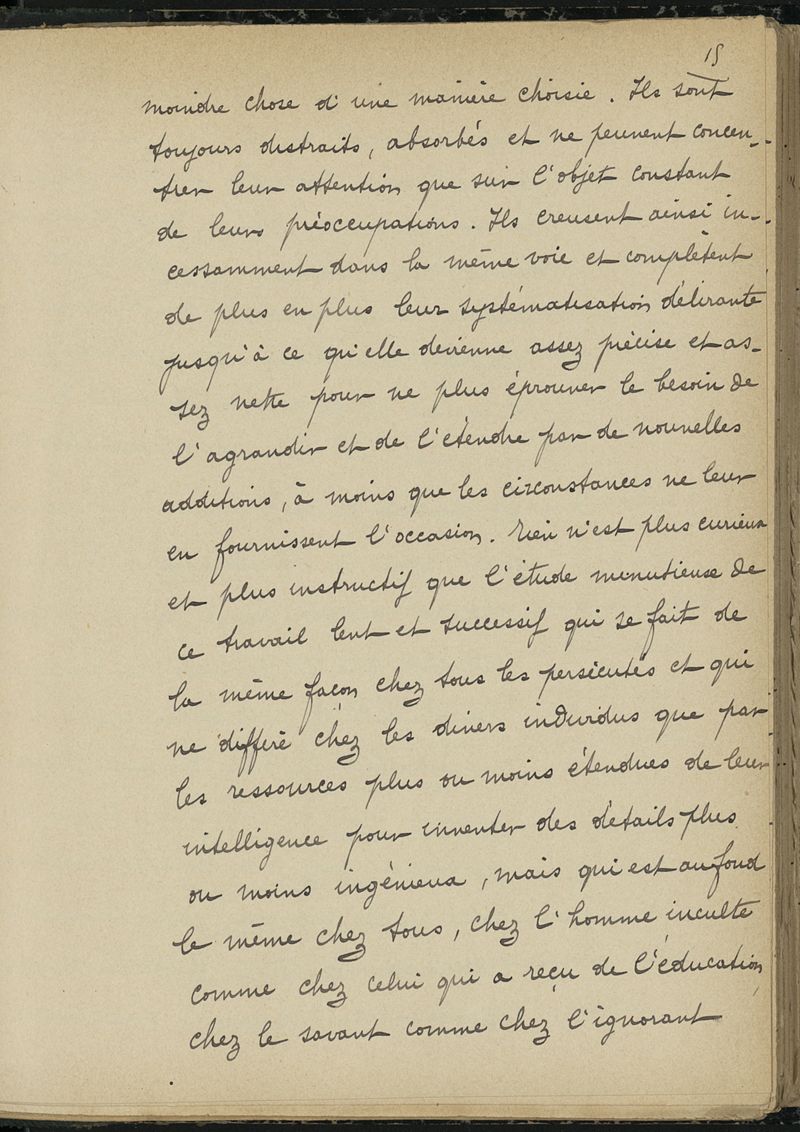 15
moindre chose d'une manière choisie. Ils sont
toujours distraits, absorbés et ne peuvent concen-
trer leur attention que sur l'objet constant
de leurs préoccupations. Ils creusent ainsi in-
cessamment dans la même voie et complètent
de plus en plus leur systématisation délirante
jusqu'à ce qu'elle devienne assez précise et as-
sez nette pour ne plus éprouver le besoin de
l'agrandir et de l'étendre par de nouvelles
additions, à moins que les circonstances ne leur
en fournissent l'occasion. Rien n'est plus curieux
et plus instructif que l'étude minutieuse de
ce travail lent et successif qui se fait de
la même façon chez tous les persécutés et qui
ne diffère chez les divers individus que par
les ressources plus ou moins étendues de leur
intelligence pour inventer des détails plus
ou moins ingénieux, mais qui est au fond
le même chez tous, chez l'homme inculte
comme chez celui qui a reçu de l'éducation,
chez le savant comme chez l'ignorant